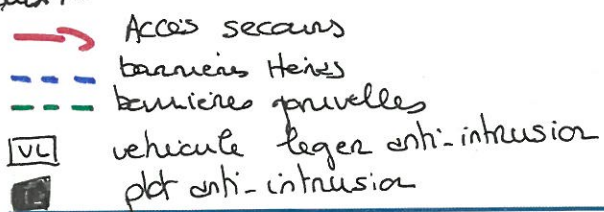 Accès secours
barrières Heras
barrières
VL véhicule leger anti-intrusion
plot anti-intrusion